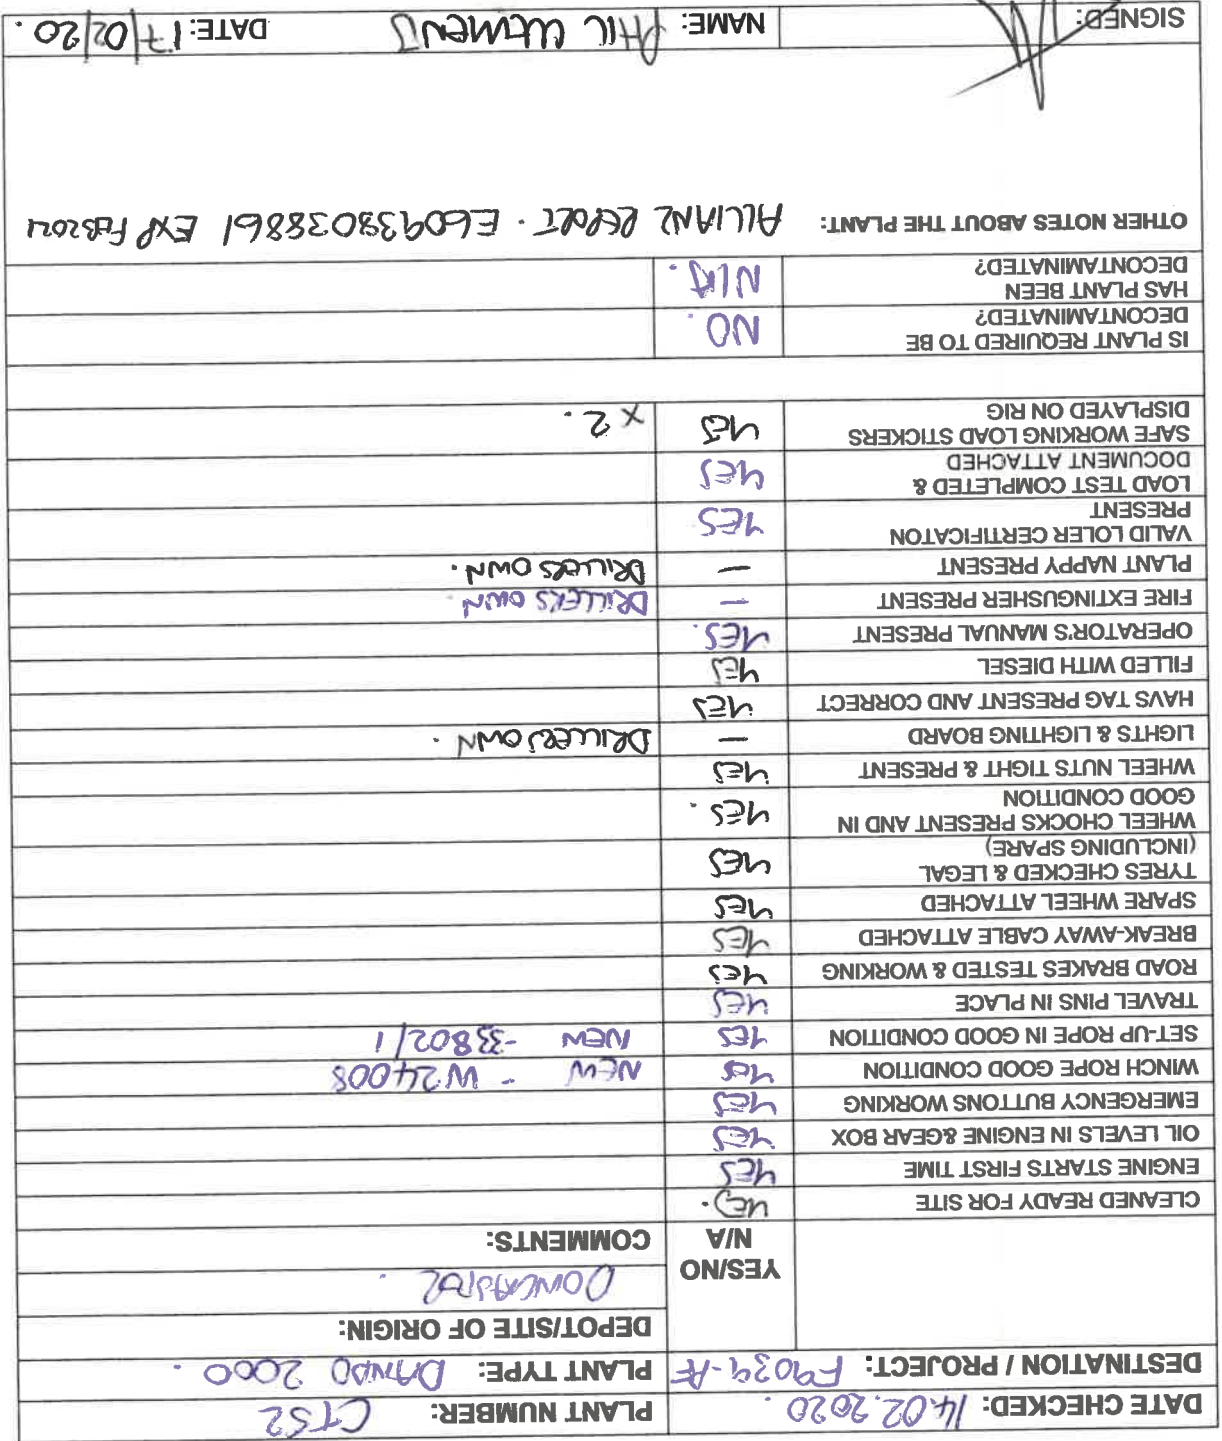 DATE CHECKED: 14.02.2020. PLANT NUMBER: CTS2
DESTINATION / PROJECT: F9039-AF PLANT TYPE: DANDO 2000.
DEPOT/SITE OF ORIGIN:
DONCASTER.
YES/NO
N/A COMMENTS:
CLEANED READY FOR SITE YES.
ENGINE STARTS FIRST TIME YES
OIL LEVELS IN ENGINE &GEAR BOX YES
EMERGENCY BUTTONS WORKING YES
WINCH ROPE GOOD CONDITION YES NEW - W24008
SET-UP ROPE IN GOOD CONDITION YES NEW -33802/1
TRAVEL PINS IN PLACE YES
ROAD BRAKES TESTED & WORKING YES
BREAK-AWAY CABLE ATTACHED YES
SPARE WHEEL ATTACHED YES
TYRES CHECKED & LEGAL
(INCLUDING SPARE) YES
WHEEL CHOCKS PRESENT AND IN
GOOD CONDITION YES.
WHEEL NUTS TIGHT & PRESENT YES
LIGHTS & LIGHTING BOARD — DRILLERS OWN.
HAVS TAG PRESENT AND CORRECT YES
FILLED WITH DIESEL YES
OPERATOR'S MANUAL PRESENT YES.
FIRE EXTINGUSHER PRESENT — DRILLERS OWN.
PLANT NAPPY PRESENT — DRILLERS OWN.
VALID LOLER CERTIFICATON
PRESENT YES
LOAD TEST COMPLETED &
DOCUMENT ATTACHED YES
SAFE WORKING LOAD STICKERS
DISPLAYED ON RIG YES x 2.
IS PLANT REQUIRED TO BE
DECONTAMINATED? NO.
HAS PLANT BEEN
DECONTAMINATED? N/A.
OTHER NOTES ABOUT THE PLANT: ALLIANZ REPORT. E60938038861 EXP FEB2021
SIGNED: NAME: PHIL CLEMENTS DATE: 17/02/20.